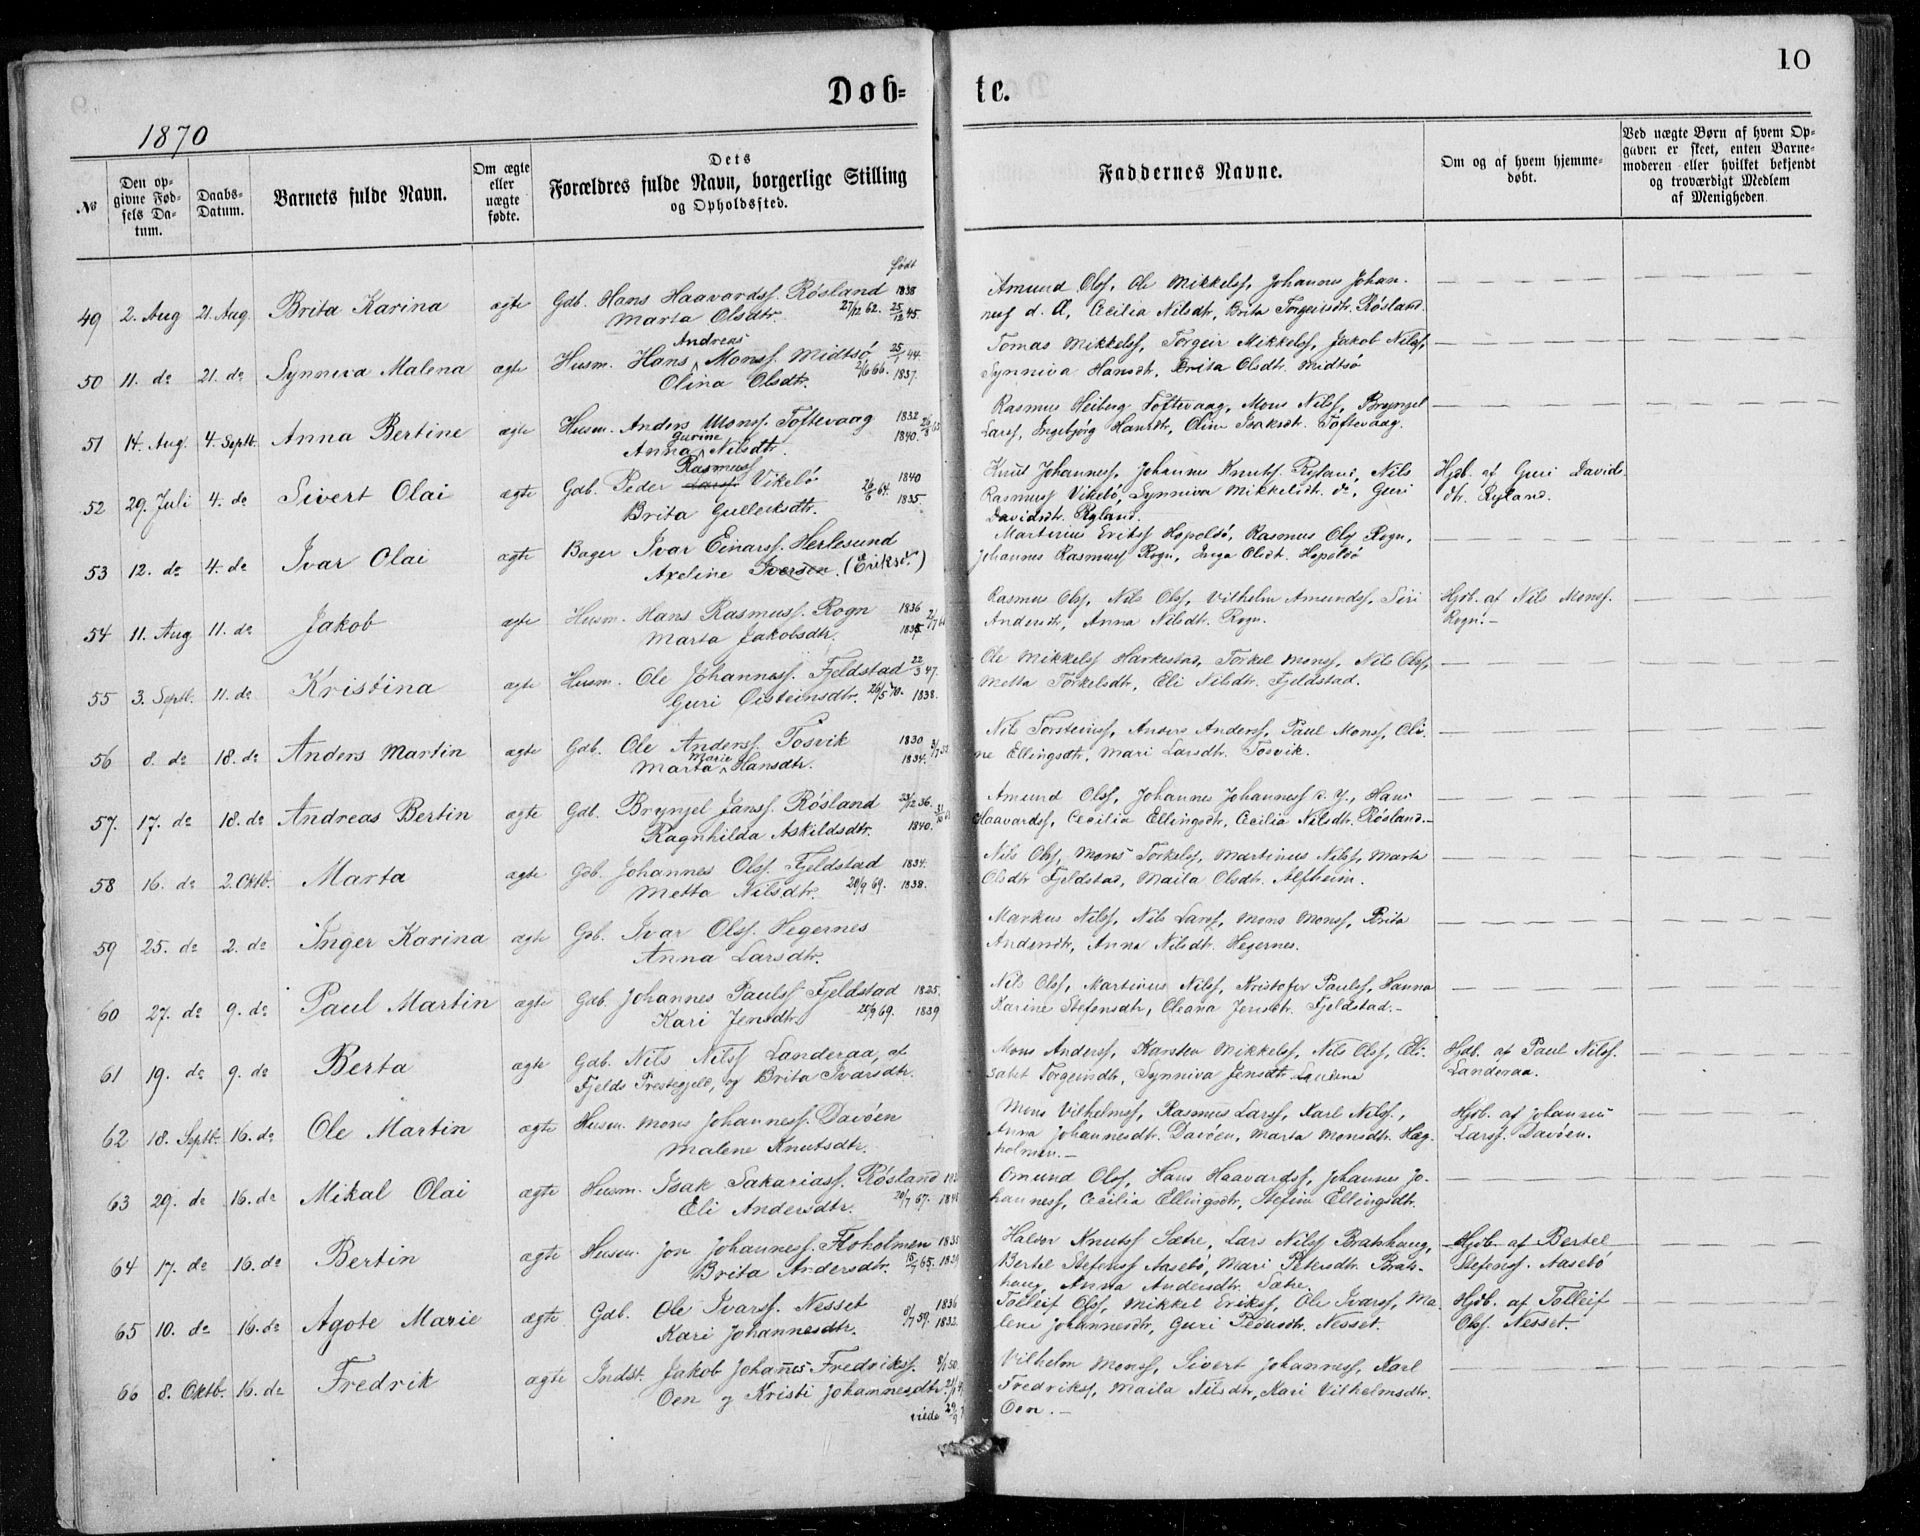 Døb=
te.
10
1870
№
Den op-
givne Fød-
sels Da-
tum.
Daabs-
Datum.
Barnets fulde Navn.
Om ægte
eller
uægte
fødte.
Dets
Forældres fulde Navn, borgerlige Stilling
og Opholdssted.
Faddernes Navne.
Om og af hvem hjemme-
døbt.
Ved uægte Børn af hvem Op-
gaven er skeet, enten Barne-
moderen eller hvilket bekjendt
og troværdigt Medlem
af Menigheden
født
49 2. Aug 21. Aug. Brita Karina ægte Gdb. Hans Haavardss. Røsland 1838
Marta Olsdtr. 27/12 62. 25/12 45.
Amund Olss, Ole Mikkelss, Johannes Johan-
ness d. Æ, Cecilia Nilsdtr, Brita Torgeirsdtr. Røsland.
50 11. do 21. do Synneva Malena ægte Husm. Hans Andreas Monss. Midtsø 25/1 44.
Olina Olsdtr. 2/6 66. 1837.
Tomas Mikkelss, Torgeir Mikkelss, Jakob Nilss,
Synniva Hansdtr, Brita Olsdtr. Midtsø
51 14. Aug. 4. Septb. Anna Bertine ægte Husm. Anders Monss. Toftevaag 1832
Anna Gurine Nilsdtr. 1840.
Rasmus Heiberg Toftevaag, Mons Nilss, Brynjel
Larss, Engebjørg Hansdtr, Oline Isaksdtr. Toftevaag.
52 29. Juli 4. do Sivert Olai ægte Gdb. Peder Larss. Rasmuss Vikebø 1840
Brita Gulleiksdtr. 26/6 64. 1835.
Knut Johanness, Johannes Knutss Ryland, Nils
Rasmuss Vikebø, Synniva Mikkelsdtr. do, Guri
Davidsdtr. Ryland.
Hjdb. af Guri Davids
dtr. Ryland.
53 12. do 4. do Ivar Olai ægte Bager Ivar Einarss. Herlesund
Axeline Iversen. (Eriksd.)
Martinius Erikss Hopoldsø, Rasmus Olss Rogn,
Johannes Rasmuss Rogn, Inga Olsdtr. Hopoldsø
54 11. Aug 11. do Jakob ægte Husm. Hans Rasmuss. Rogn 1836
Marta Jakobsdtr. 1835.
Rasmus Olss, Nils Olss, Vilhelm Amundss, Siri
Andersdtr, Anna Nilsdtr. Rogn.
Hjdb. af Nils Monss.
Rogn.-
55 3. Septb. 11. do Kristina ægte Husm. Ole Johanness. Fjeldstad 22/3 47.
Guri Oisteinsdtr. 26/5 70. 1838.
Ole Mikkelss Harkestad, Torkel Monss, Nils Olss,
Metta Torkelsdtr, Eli Nilsdtr. Fjeldstad.
56 8. do 18. do Anders Martin ægte Gdb. Ole Anderss. Tosvik 1830
Marta Marie Hansdtr. 1834.
Nils Torsteinss, Anders Anderss, Paul Monss, Oli-
ne Ellingsdtr, Mari Larsdtr. Tosvik.
57. 17. do 18. do Andreas Bertin ægte Gdb. Brynjel Janss. Røsland 23/12 36.
Ragnhilda Askildsdtr. 1840.
Amund Olss, Johannes Johanness d. Y., Hans
Haavardss, Cecilia Ellingsdtr, Cecilia Nilsdtr. Røsland.-
58 16. do 2. Oktb. Marta ægte Gdb. Johannes Olss. Fjeldstad 1834.
Metta Nilsdtr. 20/9 69. 1838.
Nils Olss, Mons Torkelss, Martinus Nilss, Marta
Olsdtr Fjeldstad, Maila Olsdtr. Alfheim.
59 25. do 2. do Inger Karina ægte Gdb. Ivar Olss. Hegernes
Anna Larsdtr.
Markus Nilss, Nils Larss, Mons Monss, Brita
Andersdtr, Anna Nilsdtr. Hegernes.
60 27. do 9. do Paul Martin ægte Gdb. Johannes Paulss Fjeldstad 1825.
Kari Jensdtr. 20/9 69. 1839
Nils Olss, Martinus Nilss, Kristofer Paulss, Hanna
Karine Stefensdtr, Oleana Jensdtr. Fjeldstad.-
61 19. do 9. do Berta ægte Gdb. Nils Nilss Landeraa, af
Fjelds Prestegjeld, og Brita Ivarsdtr.
Mons Anderss, Karsten Mikkelss, Nils Olss, Eli-
sabet Torgeirsdtr, Synniva Jensdtr
Hjdb. af Paul Nilss.
Landeraa.
62 18. Septb. 16. do Ole Martin ægte Husm. Mons Johanness. Davøen
Malene Knutsdtr.
Mons Vilhelmss, Rasmus Larss, Karl Nilss,
Anna Johannesdtr. Davøen, Marta Monsdtr. Hæg-
holmen.-
Hjdb. af Johannes
Larss. Davøen.
63 29. do 16. do Mikal Olai ægte Husm. Isak Sakariass. Røsland
Eli Andersdtr. 20/7 67.
Omund Olss, Hans Haavardss, Johannes Jo-
hanness, Cecilia Ellingsdtr, Stefine Ellingsdtr.
64 17. do 16. do Bertin ægte Husm. Jon Johanness. Floholmen
Brita Andersdtr. 15/7 65.
Halvor Knutss Sætre, Lars Nilss Bratshaug,
Bertel Stefenss Aasebø, Mari Petersdtr. Brats-
haug, Anna Andersdtr. Sætre.
Hjdb. af Bertel
Stefenss. Aasebø
65 10. do 16. do Agote Marie ægte Gdb. Ole Ivarss. Nesset 1836
Kari Johannesdtr. 8/7 59. 1832.
Tolleif Olss, Mikkel Erikss, Ole Ivarss, Ma-
lene Johannesdtr, Guri Pedersdtr. Nesset.
Hjdb. af Tolleif
Olss. Nesset.
66 8. Oktb. 16. do Fredrik ægte Indst. Jakob Johannes Fredrikss. 8/1 50.
Oen og Kristi Johannesdtr.
viede
Vilhelm Monss, Sivert Johanness, Karl
Fredrikss, Maila Nilsdtr, Kari Vilhelmsdtr.
Oen.-